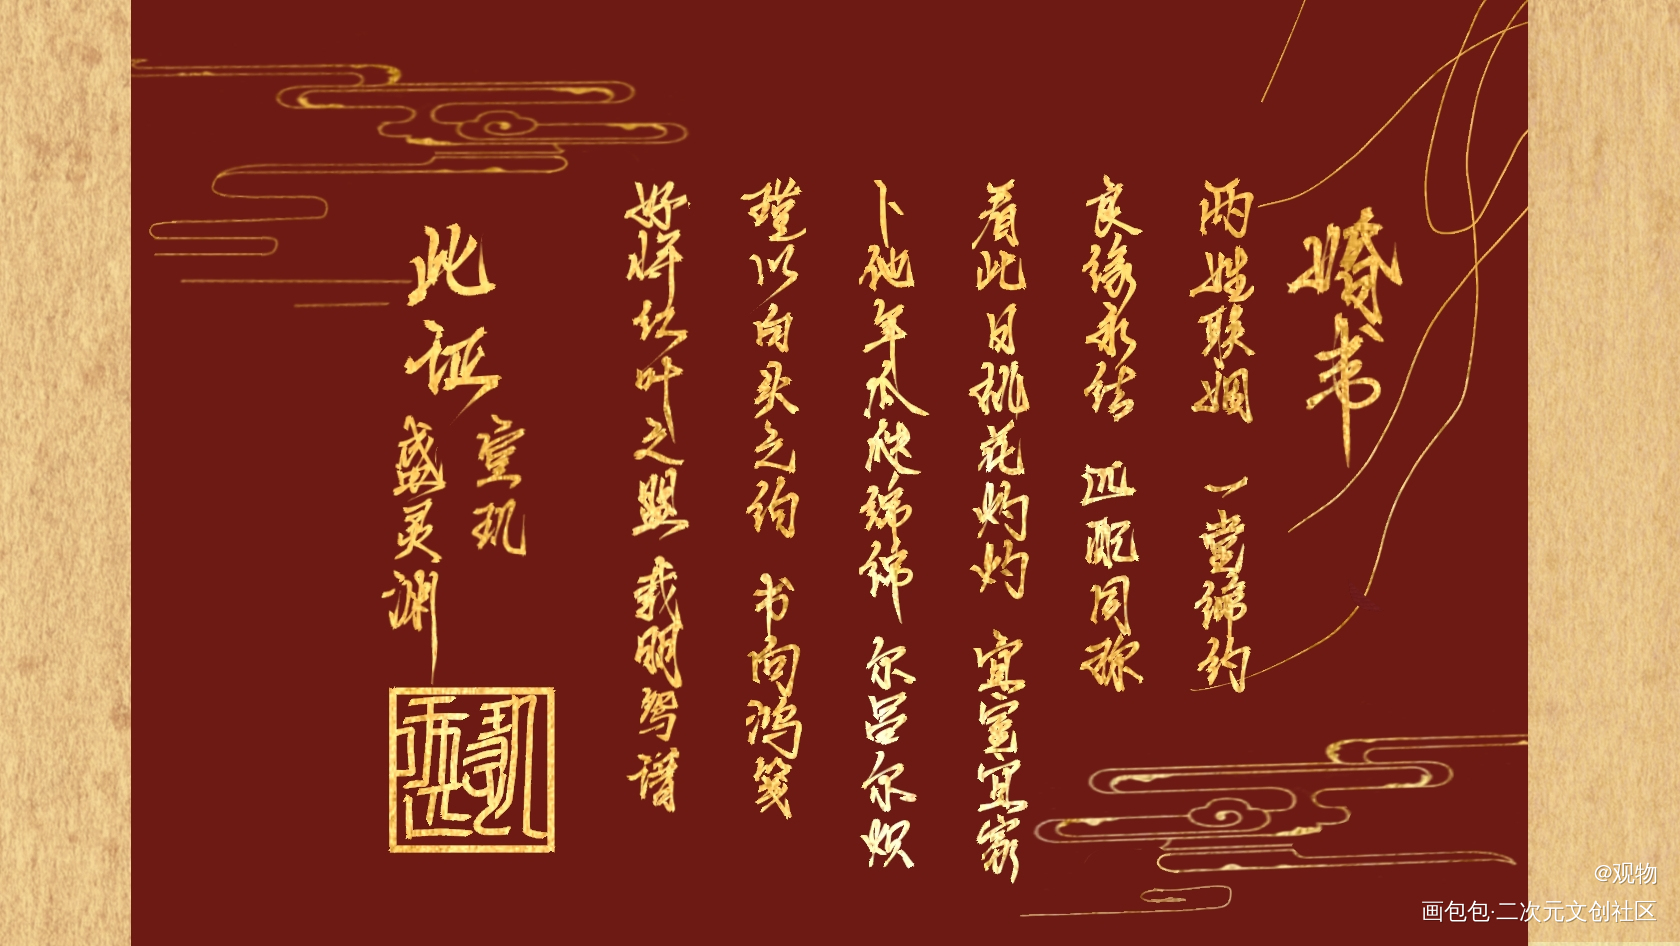 婚书
两姓联姻 一堂缔约
良缘永结 匹配同称
看此日桃花灼灼 宜室宜家
卜他年瓜瓞绵绵 尔昌尔炽
谨以白头之约 书向鸿笺
好将红叶之盟 载明鸳谱
此证
宣玑
盛灵渊
@观物
画包包·二次元文创社区